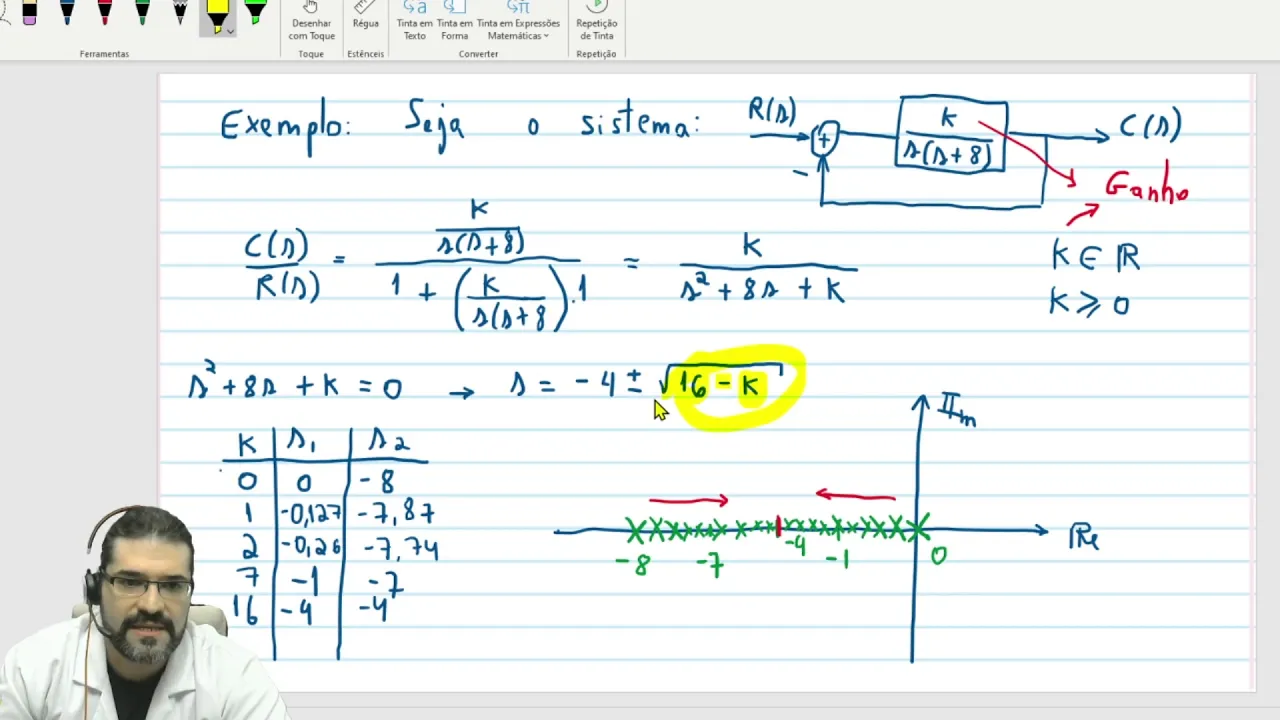 Desenhar com Toque
Régua
Tinta em Texto
Tinta em Forma
Tinta em Expressões Matemáticas
Repetição de Tinta
Ferramentas
Toque
Estênceis
Converter
Repetição
Exemplo: Seja o sistema:
R(s) + - k / s(s+8) C(s)
Ganho
C(s)/R(s) = (k / s(s+8)) / (1 + (k / s(s+8).1) = k / (s² + 8s + k)
k ∈ ℝ
k ⩾ 0
s² + 8s + k = 0 → s = -4 ± √16 - k
k s₁ s₂
0 0 -8
1 -0,127 -7,87
2 -0,26 -7,74
7 -1 -7
16 -4 -4
IIm
Re
-8 -7 -4 -1 0